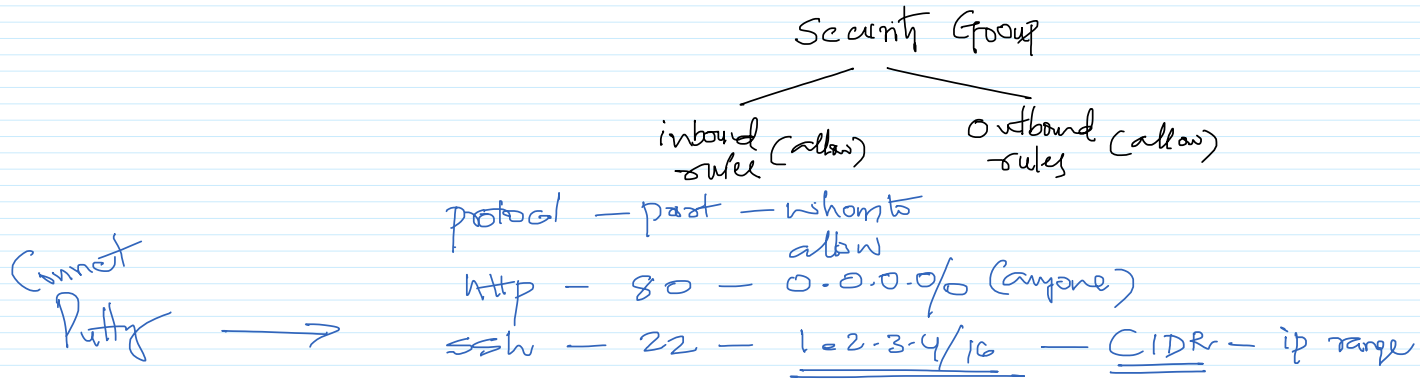 Security Group
inbound rules (allow)
outbound rules (allow)
protocol – port – whom to allow
http – 80 – 0.0.0.0/0 (anyone)
Connect Putty → ssh – 22 – 1.2.3.4/16 – CIDR – ip range